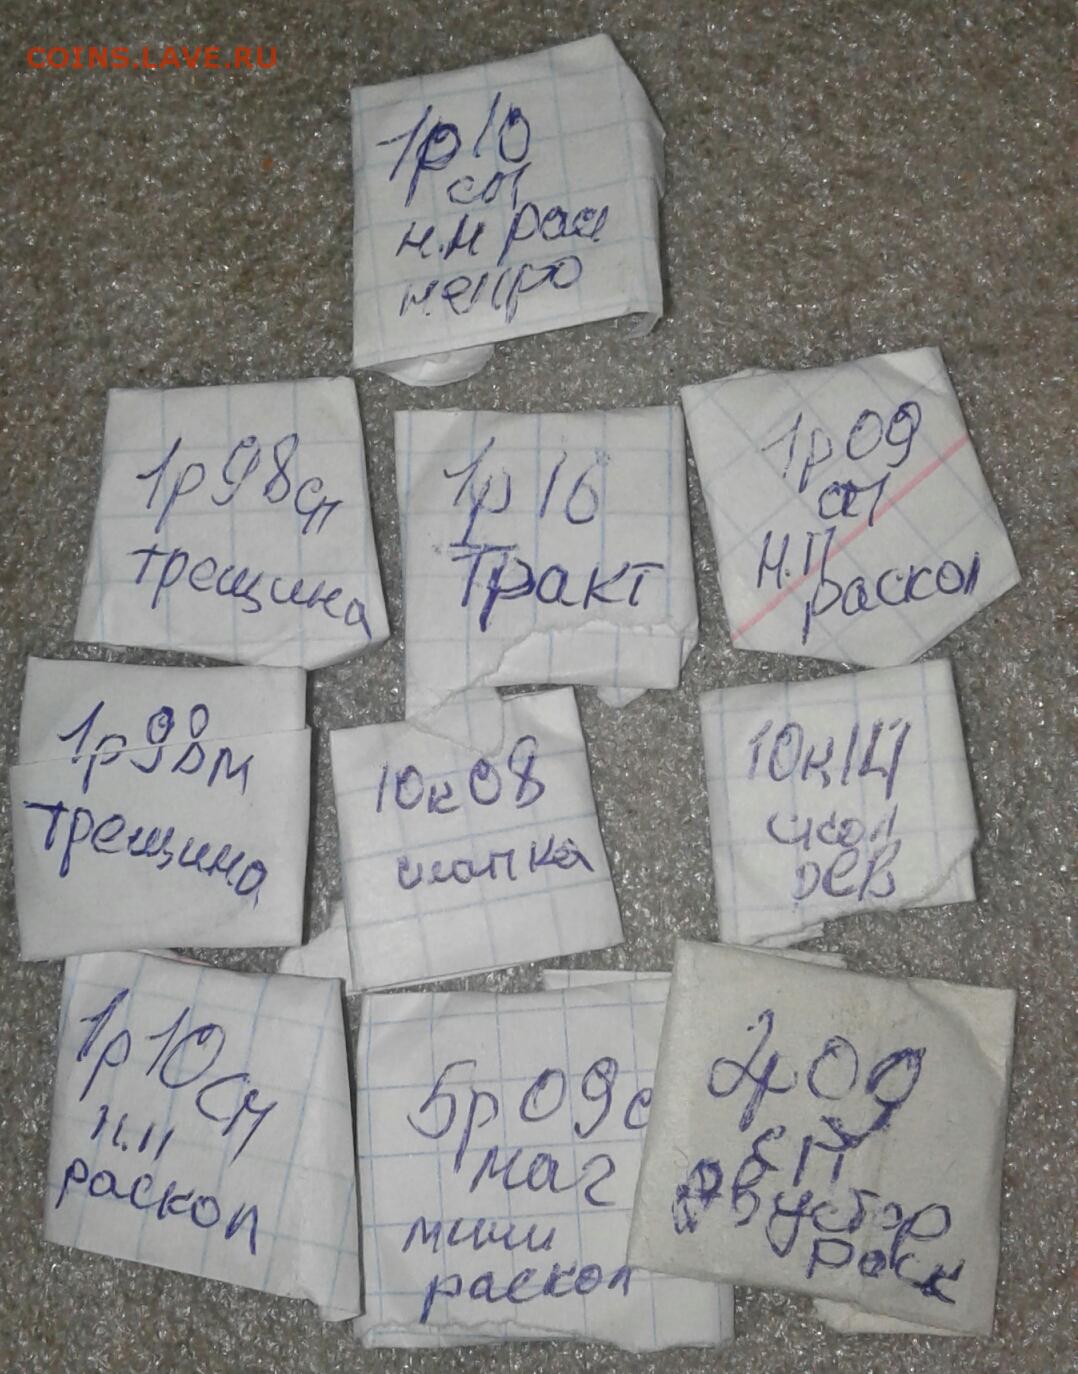 COINS.LAVE.RU
1р10
сп
н.н рас
непро
1р98сп
трещина
1р16
Тракт
1р09
сп
Н.П
раскол
1р98м
трещина
10к08
шапка
10к14
скол
рев
1р10сп
н.п
раскол
5р09с
маг
мини
раскол
2р09
СП
двустор
раск